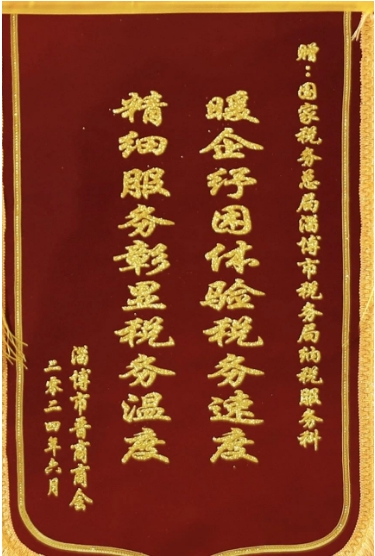 赠：国家税务总局淄博市税务局纳税服务科
暖企纾困体验税务速度
精细服务彰显税务温度
淄博市晋商商会
二零二四年六月